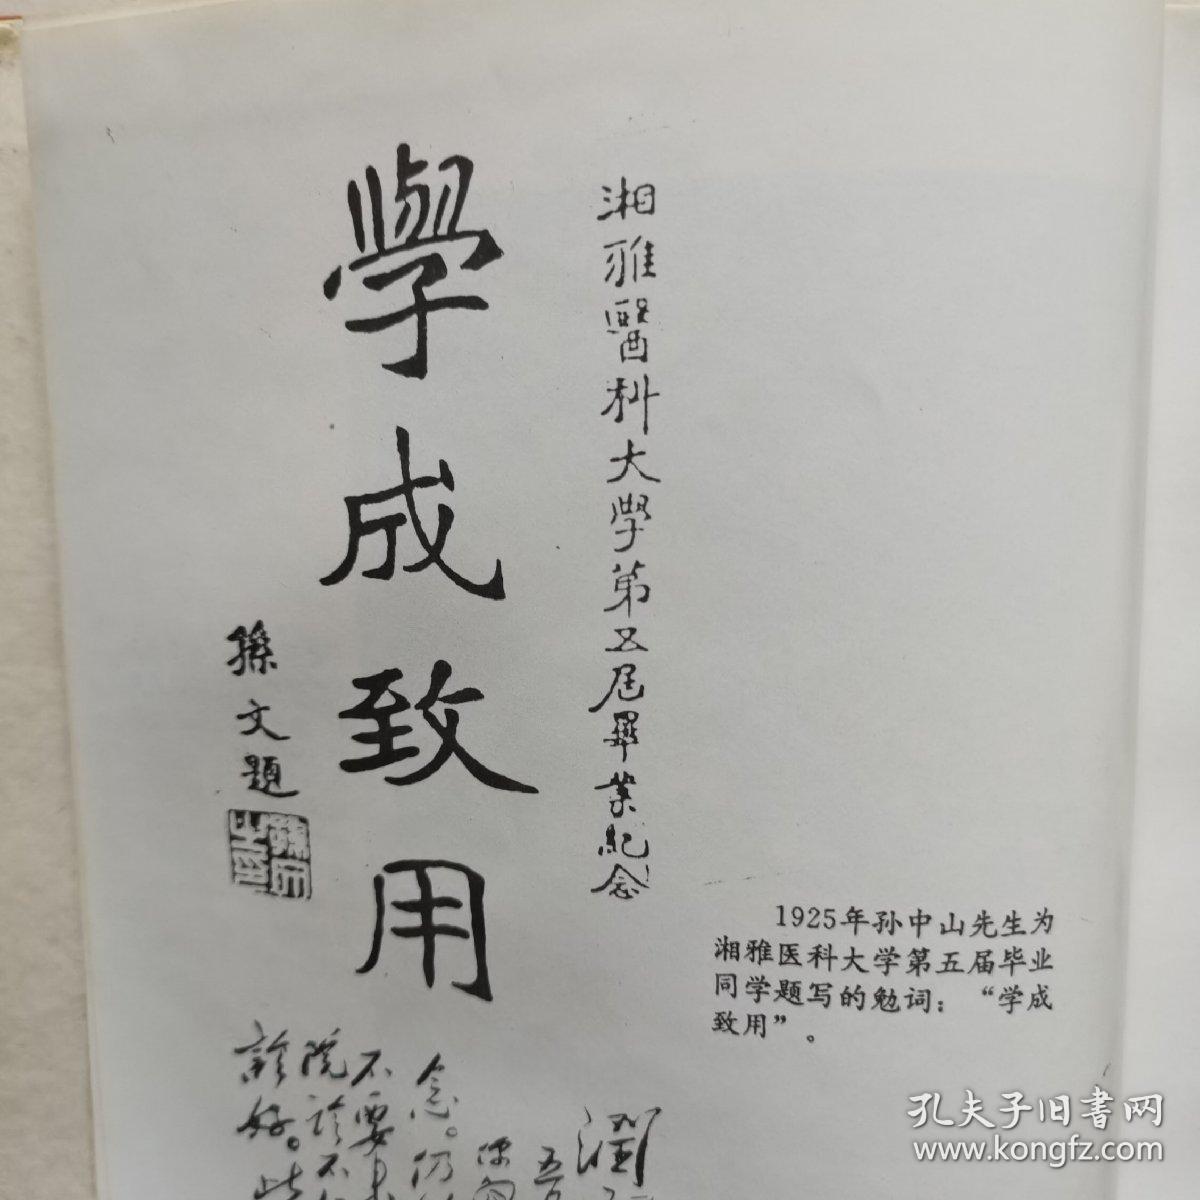 湘雅醫科大學第五屆畢業紀念
學成致用
孫文題
1925年孙中山先生为
湘雅医科大学第五届毕业
同学题写的勉词：“学成
致用”。
念。仍
不要
院診不
診好。此
孔夫子旧书网
www.kongfz.com